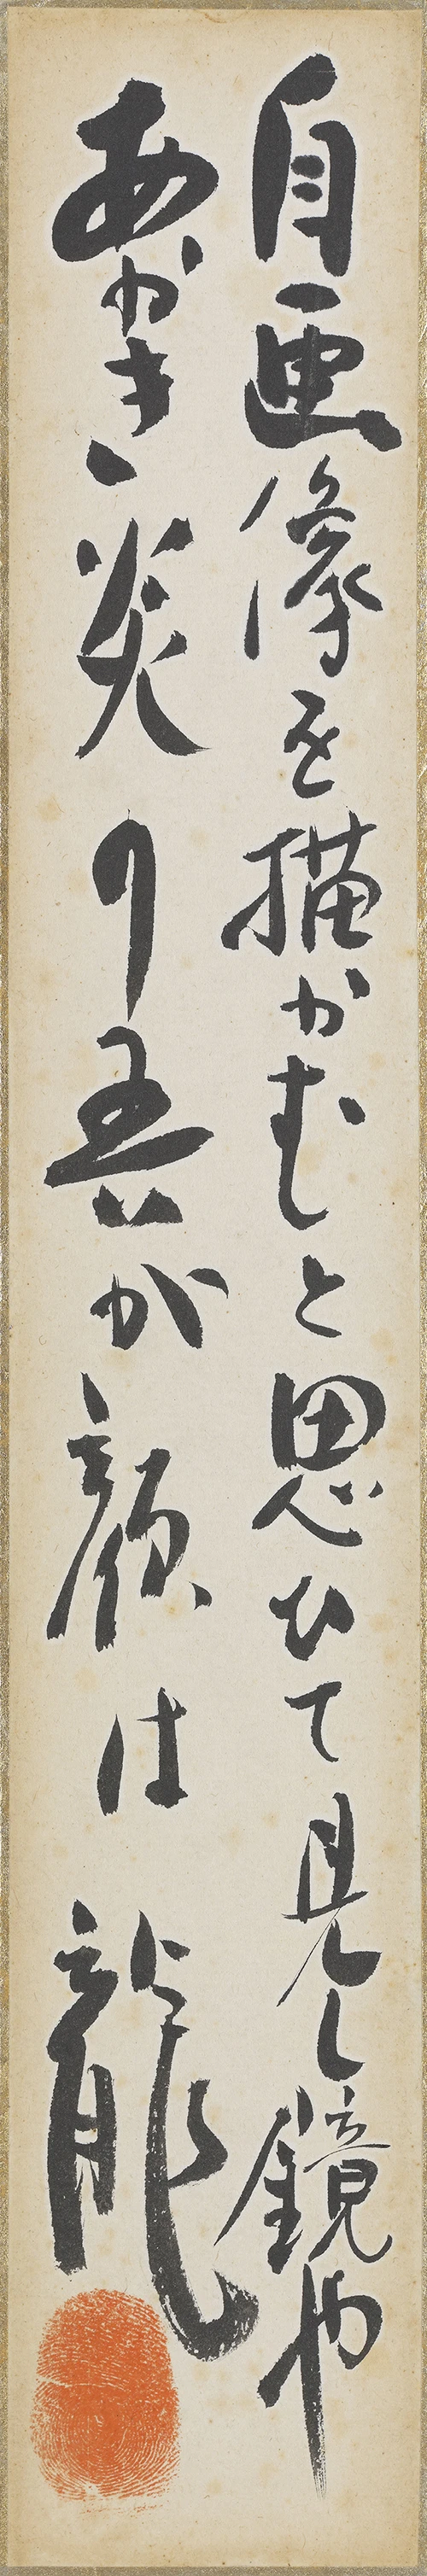 自画像を描かむと思ひて見し鏡や
あかき炎の吾が顔は 龍